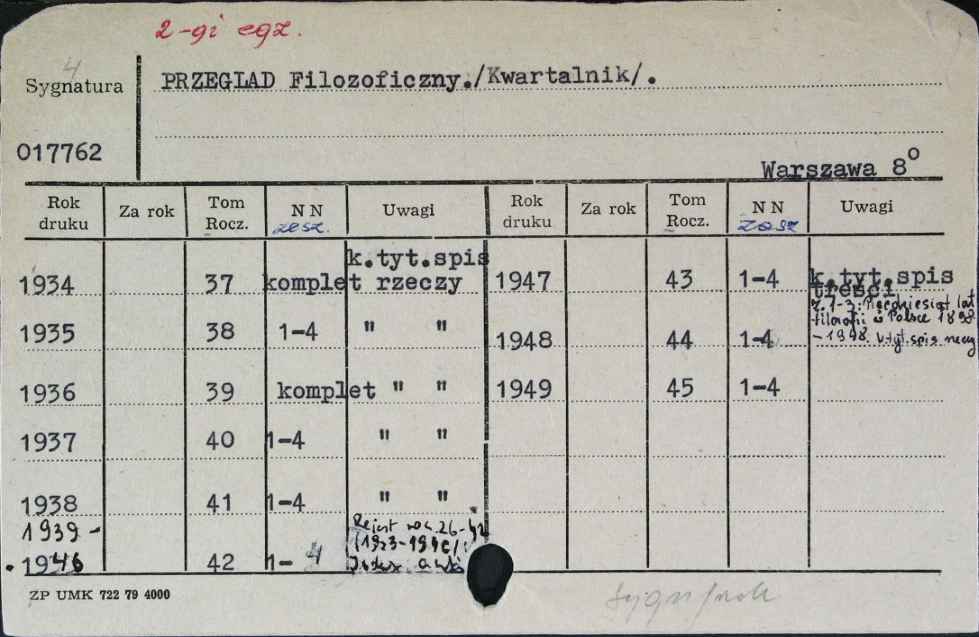 2-gi egz.
4
Sygnatura PRZEGLAD Filozoficzny./Kwartalnik/.
017762
Warszawa 8º
Rok druku Za rok Tom Rocz. NN zesz. Uwagi Rok druku Za rok Tom Rocz. NN zesz Uwagi
1934 37 komplet k.tyt.spis rzeczy 1947 43 1-4 k.tyt.spis treści
1935 38 1-4 " " 1948 44 1-4 z. 1-3: Pięćdziesiąt lat filozofii w Polsce 1898 - 1948. k.tyt.spis rzeczy
1936 39 komplet " " 1949 45 1-4
1937 40 1-4 " "
1938 41 1-4 " "
1939 -
1946 42 1-4 26-42 (1923-1946)
ZP UMK 722 79 4000